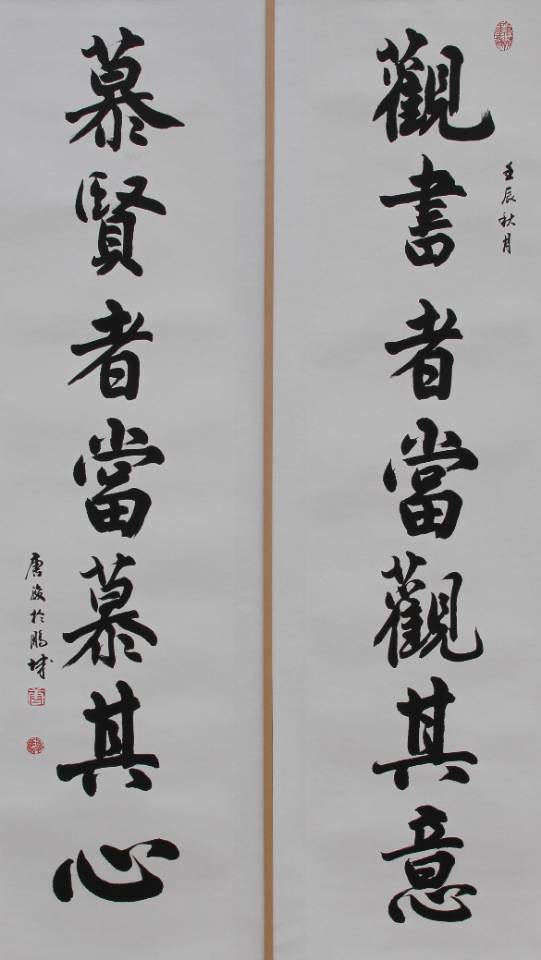 觀書者當觀其意
壬辰秋月
慕賢者當慕其心
唐駿於鵬城